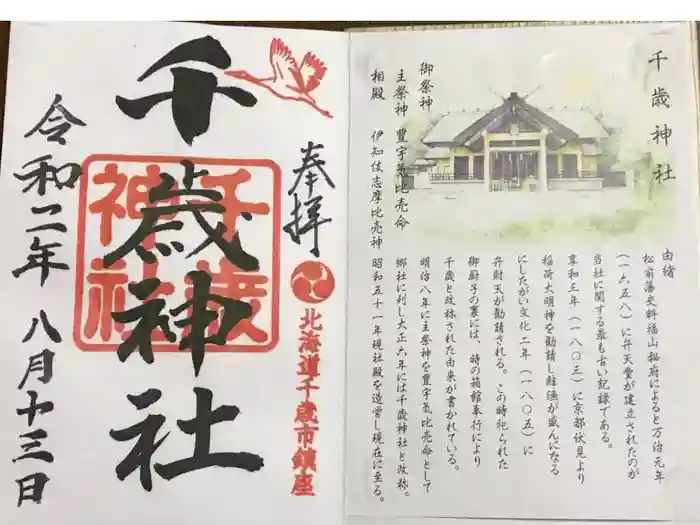 奉拝
北海道千歳市鎮座
千歳神社
千歳
神社
令和二年 八月十三日
千歳神社
御祭神
主祭神 豊宇気比売命
相殿 伊知伎志摩比売神
由緒
松前藩史料福山秘府によると万治元年
(一六五八)に弁天堂が建立されたのが
当社に関する最も古い記録である。
享和三年(一八〇三)に京都伏見より
稲荷大明神を勧請し鮭漁が盛んになる
にしたがい文化二年(一八〇五)に
弁財天が勧請される。この時祀られた
御厨子の裏には、時の箱館奉行により
千歳と改称された由来が書かれている。
明治八年に主祭神を豊宇気比売命として
郷社に列し大正六年には千歳神社と改称。
昭和五十一年現社殿を造営し現在に至る。